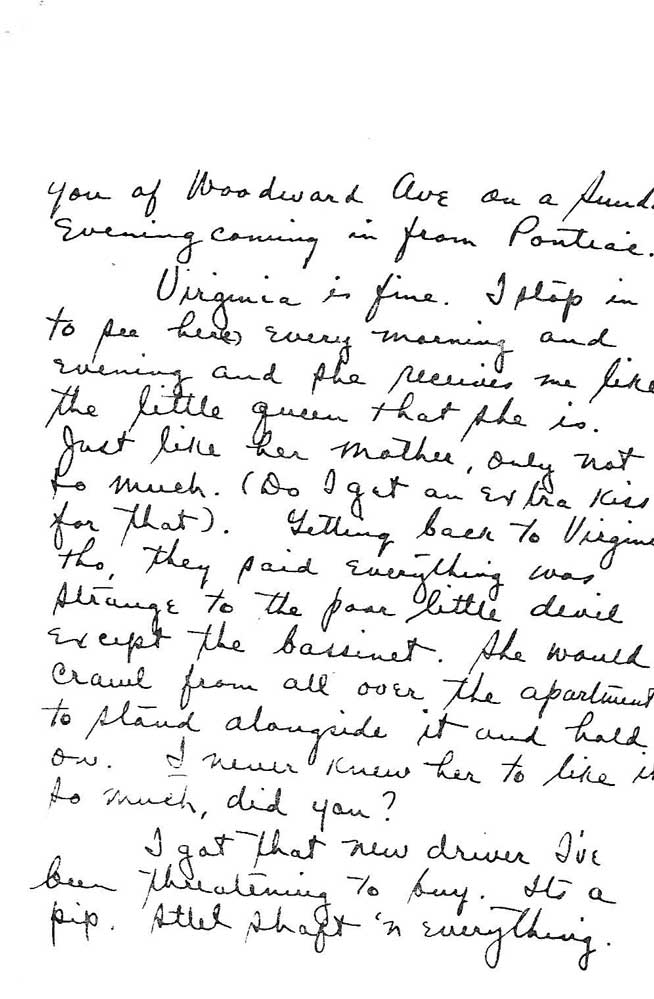 you of Woodward Ave on a Sund
Evening coming in from Pontiac.
Virginia is fine. I stop in
to see here) every morning and
evening and she receives me like
the little queen that she is.
Just like her mother, only not
so much. (Do I get an extra kiss
for that). Getting back to Virgin
tho, they paid everything was
strange to the poor little devil
except the bassinet. She would
crawl from all over the apartment
to stand alongside it and hold
on. I never knew her to like it
so much, did you?
I got that new driver I've
been threatening to buy. Its a
pip. Stlel shaft 'n everything.